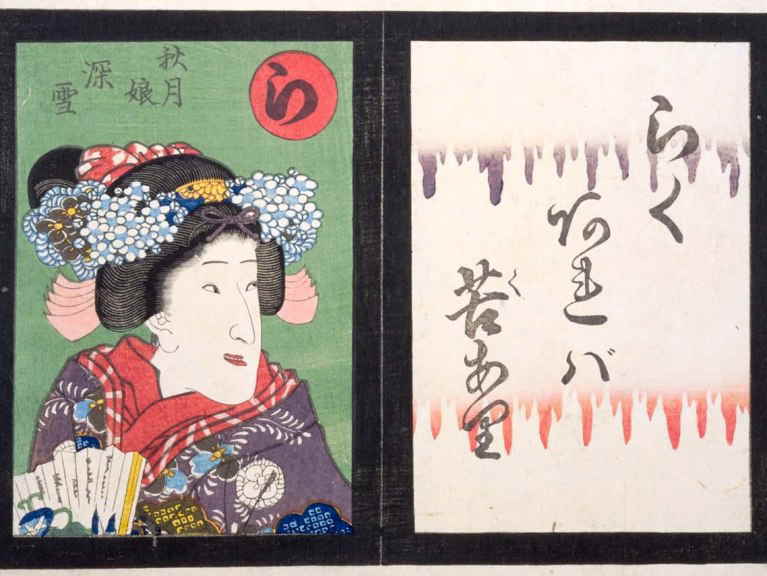 ら
秋月
娘
深
雪
らく
あれバ
苦く
あり